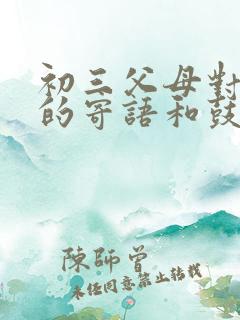 初三父母對
的寄語和鼓
陳師曾
未经同意禁止转载